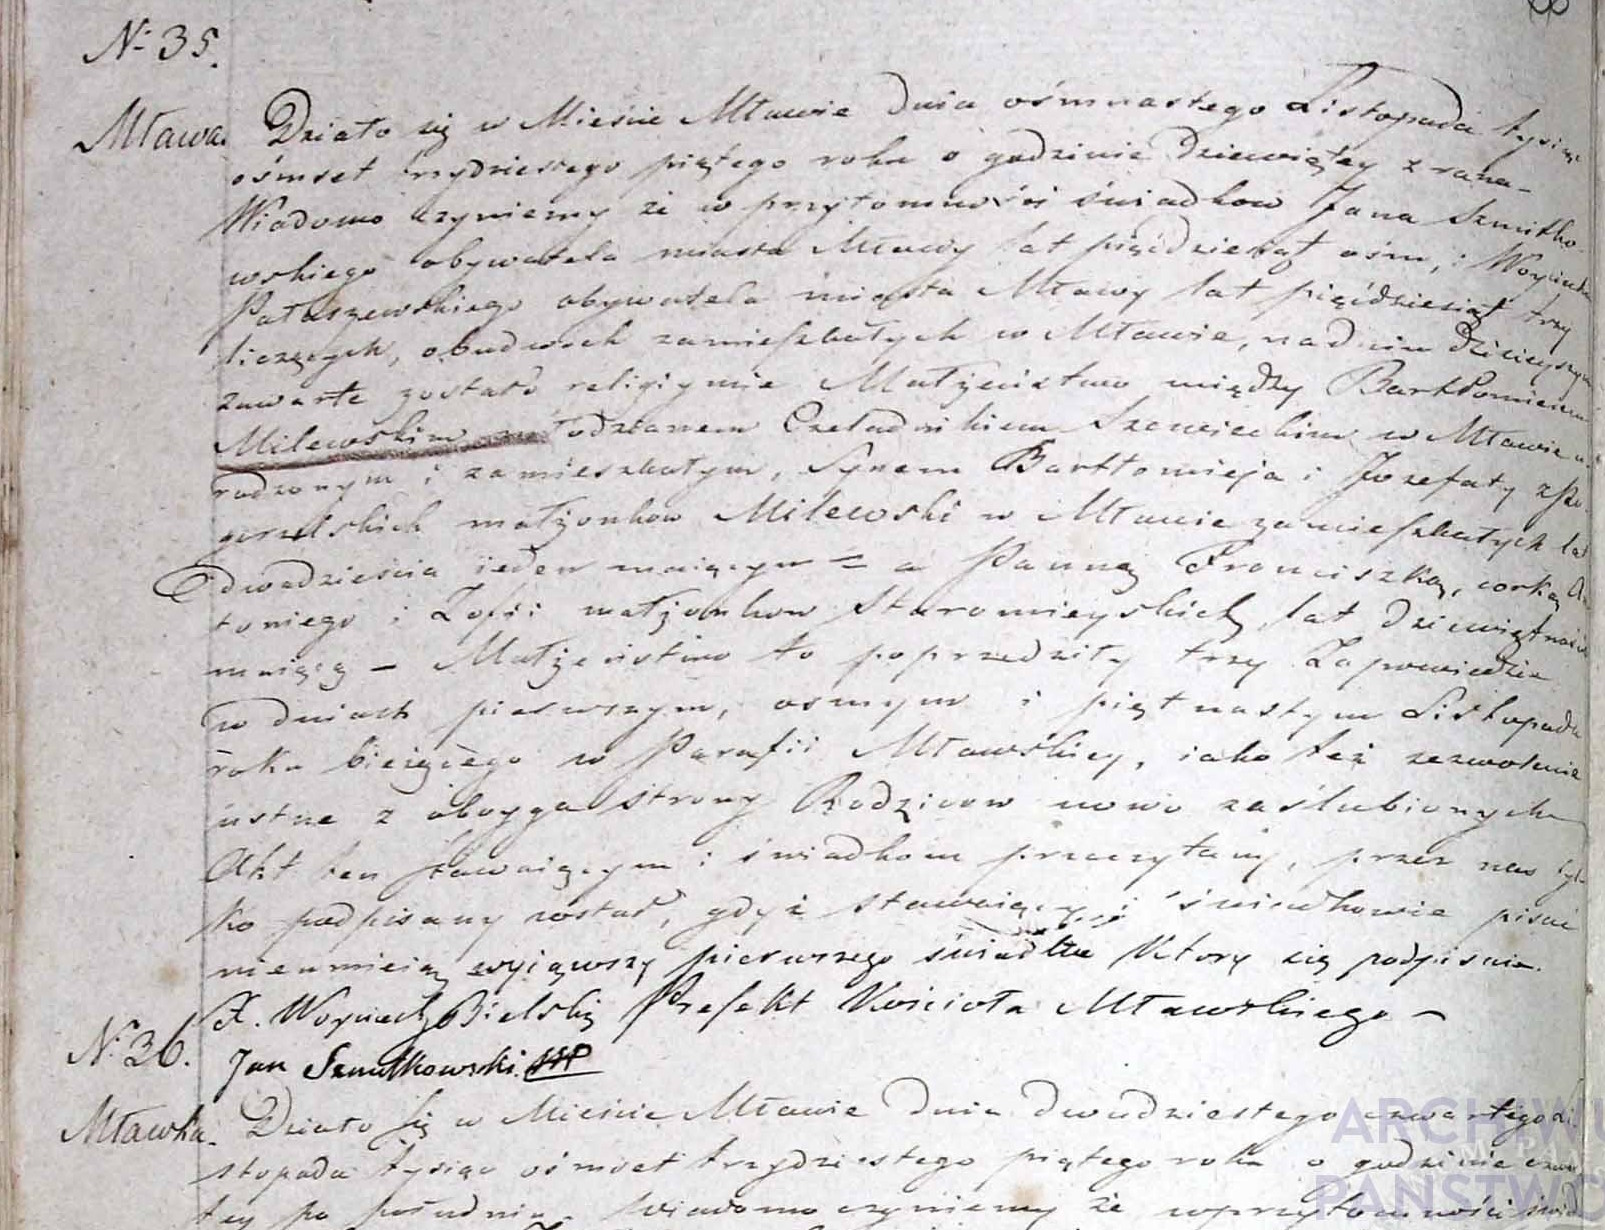 N: 35.
Mława.
Działo się w Mieście Mławie dnia ośmnastego Listopada tysiąc
ośmset trzydziestego piątego roku o godzinie dziewiątey z rana –
Wiadomo czyniemy że w przytomności świadków Jana Szmitko-
wskiego obywatela miasta Mławy lat pięćdziesiąt ośm, i Woyciecha
Pataszewskiego obywatela miasta Mławy lat pięćdziesiąt trzy
liczących, obudwóch zamieszkałych w Mławie, na dniu dzisieyszym
zawarte zostało religiynie Małżeństwo między Bartłomieiem
Milewskim młodzianem Czeladnikiem Szewieckim w Mławie u-
rodzonym i zamieszkałym, Synem Bartłomieja i Jozefaty z Po-
gorzelskich małżonkow Milewski w Mławie zamieszkałych lat
dwadzieścia ieden maiącym = a Panną Franciszką, corką An
toniego i Zofii małżonkow Staromieyskich, lat dziewiętnaście
maiącą – Małżeństwo to poprzedziły trzy Zapowiedzie
w dniach pierwszym, osmym i piętnastym Listopada
roku bieżącego w Parafii Mławskiey, iako też zezwolenie
ustne z oboyga strony Rodziców nowo zaślubionych
Akt ten stawaiącym i świadkom przeczytany, przez nas tyl-
ko podpisany został, gdyż stawaiący i świadkowie pisać
nieumieią wyiąwszy pierwszego świadka ktory się podpisuie.
X. Woyciech Bielski Prefekt Kościoła Mławskiego –
Jan Szmitkowski
N: 36.
Mławka.
Działo się w Mieście Mławie dnia dwudziestego czwartego Li-
stopada tysiąc ośmset trzydziestego piątego roku o godzinie czwar
tey po południu. Wiadomo czyniemy że w przytomności świad
ARCHIWU
PAŃSTWO